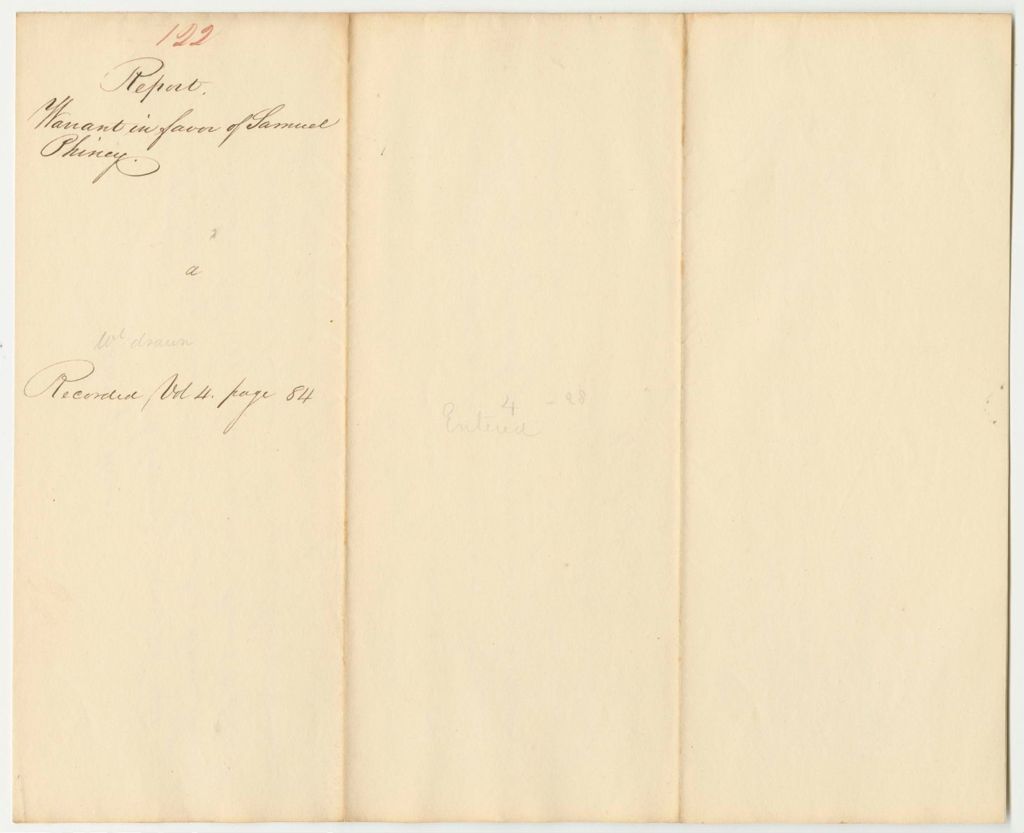 122
Report.
Warrant in favor of Samuel
Phiney.
a
Wd drawn
Recorded Vol 4. page 84
4 - 28
Entered